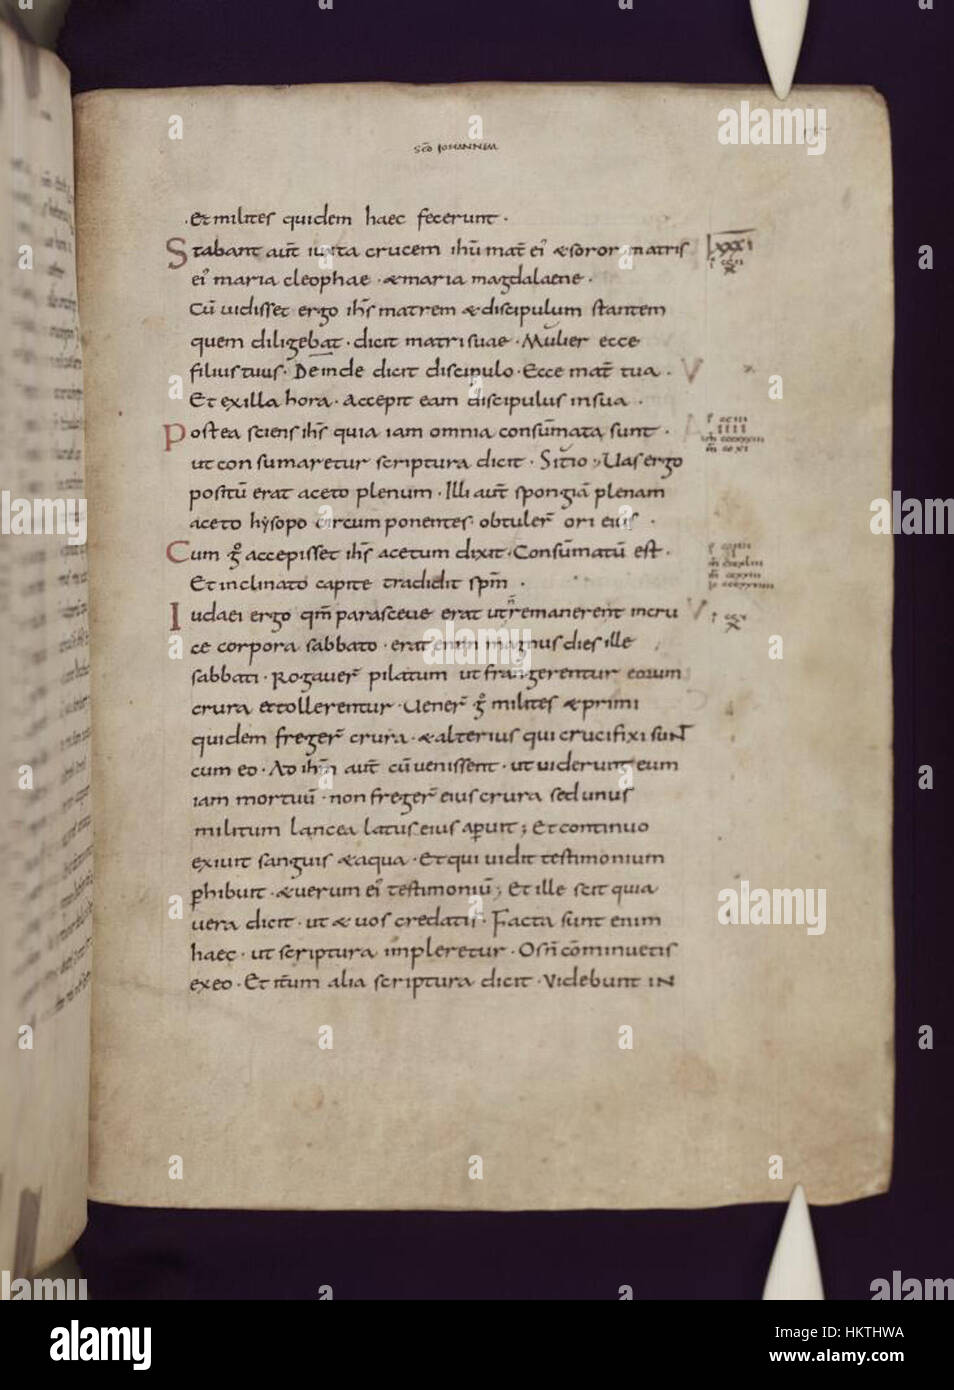 sc̄o IOHANNEM
·Et milites quidem haec fecerunt·
Stabant aut̄ iuxta crucem ih̄u mat̄ ei' & soror matris
lxxxi
ei' maria cleophae ·& maria magdalaene·
Cū uidisset ergo ih̄s matrem & discipulum stantem
quem diligebat· dicit matri suae· Mulier ecce
filius tuus· Deinde dicit discipulo· Ecce mat̄ tua·
Et ex illa hora· Accepit eam discipulus in sua·
Postea sciens ih̄s quia iam omnia consūmata sunt·
ut consumaretur scriptura dicit· Sitio; Uas ergo
positū erat aceto plenum· Illi aut̄ spongiā plenam
aceto hysopo circum ponentes· obtuler̄ ori eius·
Cum g° accepisset ih̄s acetum dixit· Consūmatū est·
Et inclinato capite tradidit sp̄m·
Iudaei ergo qm̄ parasceue erat ut n̄ remanerent in cru
ce corpora sabbato· erat enim magnus dies ille
sabbati· Rogauer̄ pilatum ut frangerentur eorum
crura et tollerentur· Uener̄ g° milites & primi
quidem freger̄ crura· & alterius qui crucifixi sunt
cum eo· Ad ih̄m aut̄ cū uenissent· ut uiderunt eum
iam mortuū· non freger̄ eius crura sed unus
militum lancea latus eius aꝑuit; Et continuo
exiuit sanguis & aqua· Et qui uidit testimonium
ꝑhibuit· & uerum ei' testimoniū; Et ille scit quia
uera dicit· ut & uos credatis· Facta sunt enim
haec· ut scriptura impleretur· Os n̄ cōminuetis
ex eo· Et it̄um alia scriptura dicit· Videbunt in
alamy
a
Image ID: HKTHWA
www.alamy.com